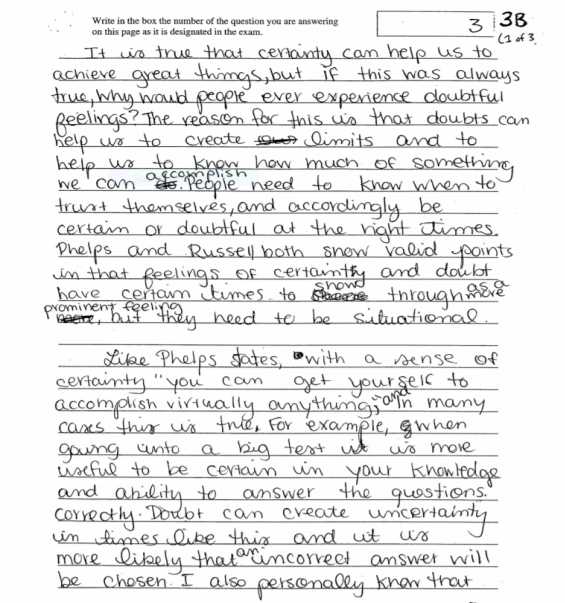 Write in the box the number of the question you are answering
on this page as it is designated in the exam.
3
3B
(1 of 3
It is true that certainty can help us to
achieve great things, but if this was always
true, why would people ever experience doubtful
feelings? The reason for this is that doubts can
help us to create limits and to
help us to know how much of something
we can accomplish. People need to know when to
trust themselves, and accordingly be
certain or doubtful at the right times.
Phelps and Russell both show valid points
in that feelings of certainty and doubt
have certain times to show through as a more
prominent feeling, but they need to be situational.
Like Phelps states, with a sense of
certainty "you can get yourself to
accomplish virtually anything," and in many
cases this is true. For example, when
going into a big test it is more
useful to be certain in your knowledge
and ability to answer the questions
correctly. Doubt can create uncertainty
in times like this and it is
more likely that an incorrect answer will
be chosen. I also personally know that